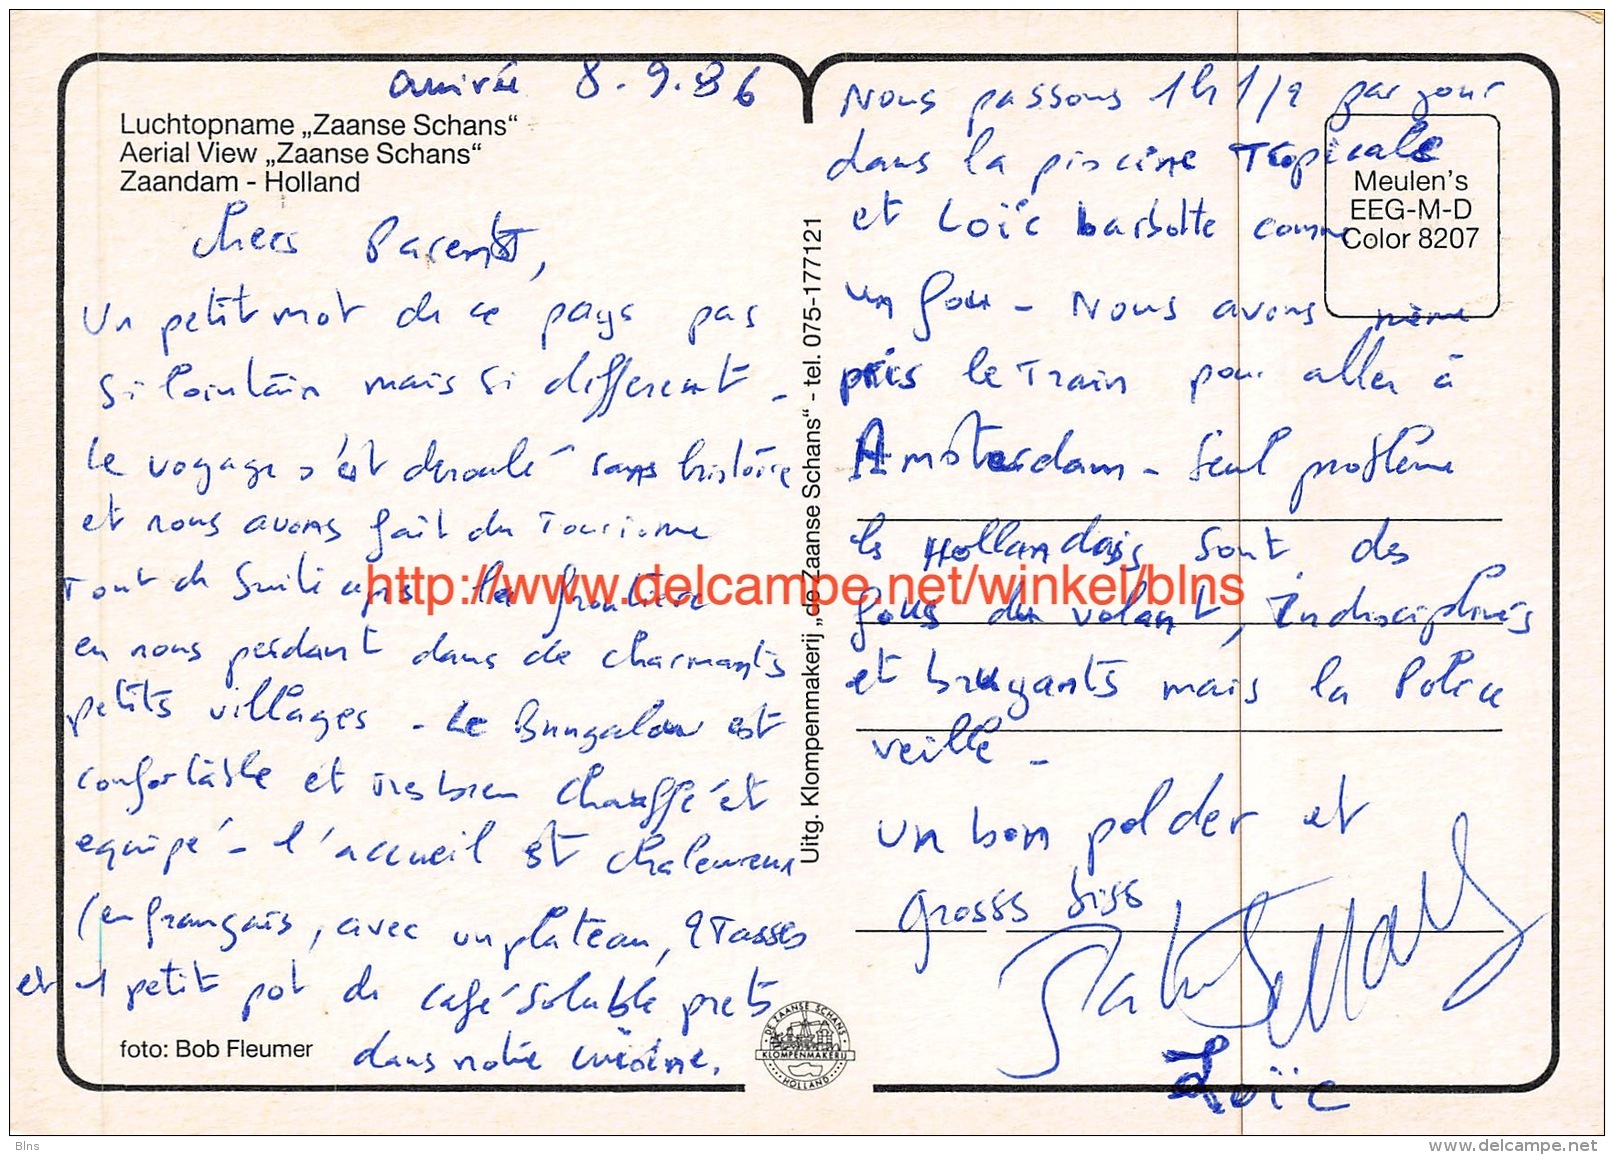 arrivée 8.9.86
Luchtopname „Zaanse Schans“
Aerial View „Zaanse Schans“
Zaandam - Holland
Chers Parents,
Un petit mot de ce pays pas
si lointain mais si different -
Le voyage s'est deroulé sans histoire
et nous avons fait du Tourisme
Tout de suite apres la frontière
en nous perdant dans de charmants
petits villages - Le Bungalow est
confortable et tres bien chauffé et
equipé - l'accueil est chaleureux
(en français, avec un plateau, 2 Tasses
et 1 petit pot de café soluble prets
dans notre cuisine.
foto: Bob Fleumer
Uitg. Klompenmakerij „de Zaanse Schans“ - tel. 075-177121
DE ZAANSE SCHANS
KLOMPENMAKERIJ
HOLLAND
Nous passons 1h 1/2 par jour
dans la piscine Tropicale
et Loïc barbotte comme
un fou - Nous avons même
pris le Train pour aller à
Amsterdam - Seul problème
les Hollandais sont des
fous du volant, Indisciplinés
et bruyants mais la Police
veille -
un bon polder et
grosss biss
Loïc
Meulen's
EEG-M-D
Color 8207
http://www.delcampe.net/winkel/blns
Blns
www.delcampe.net